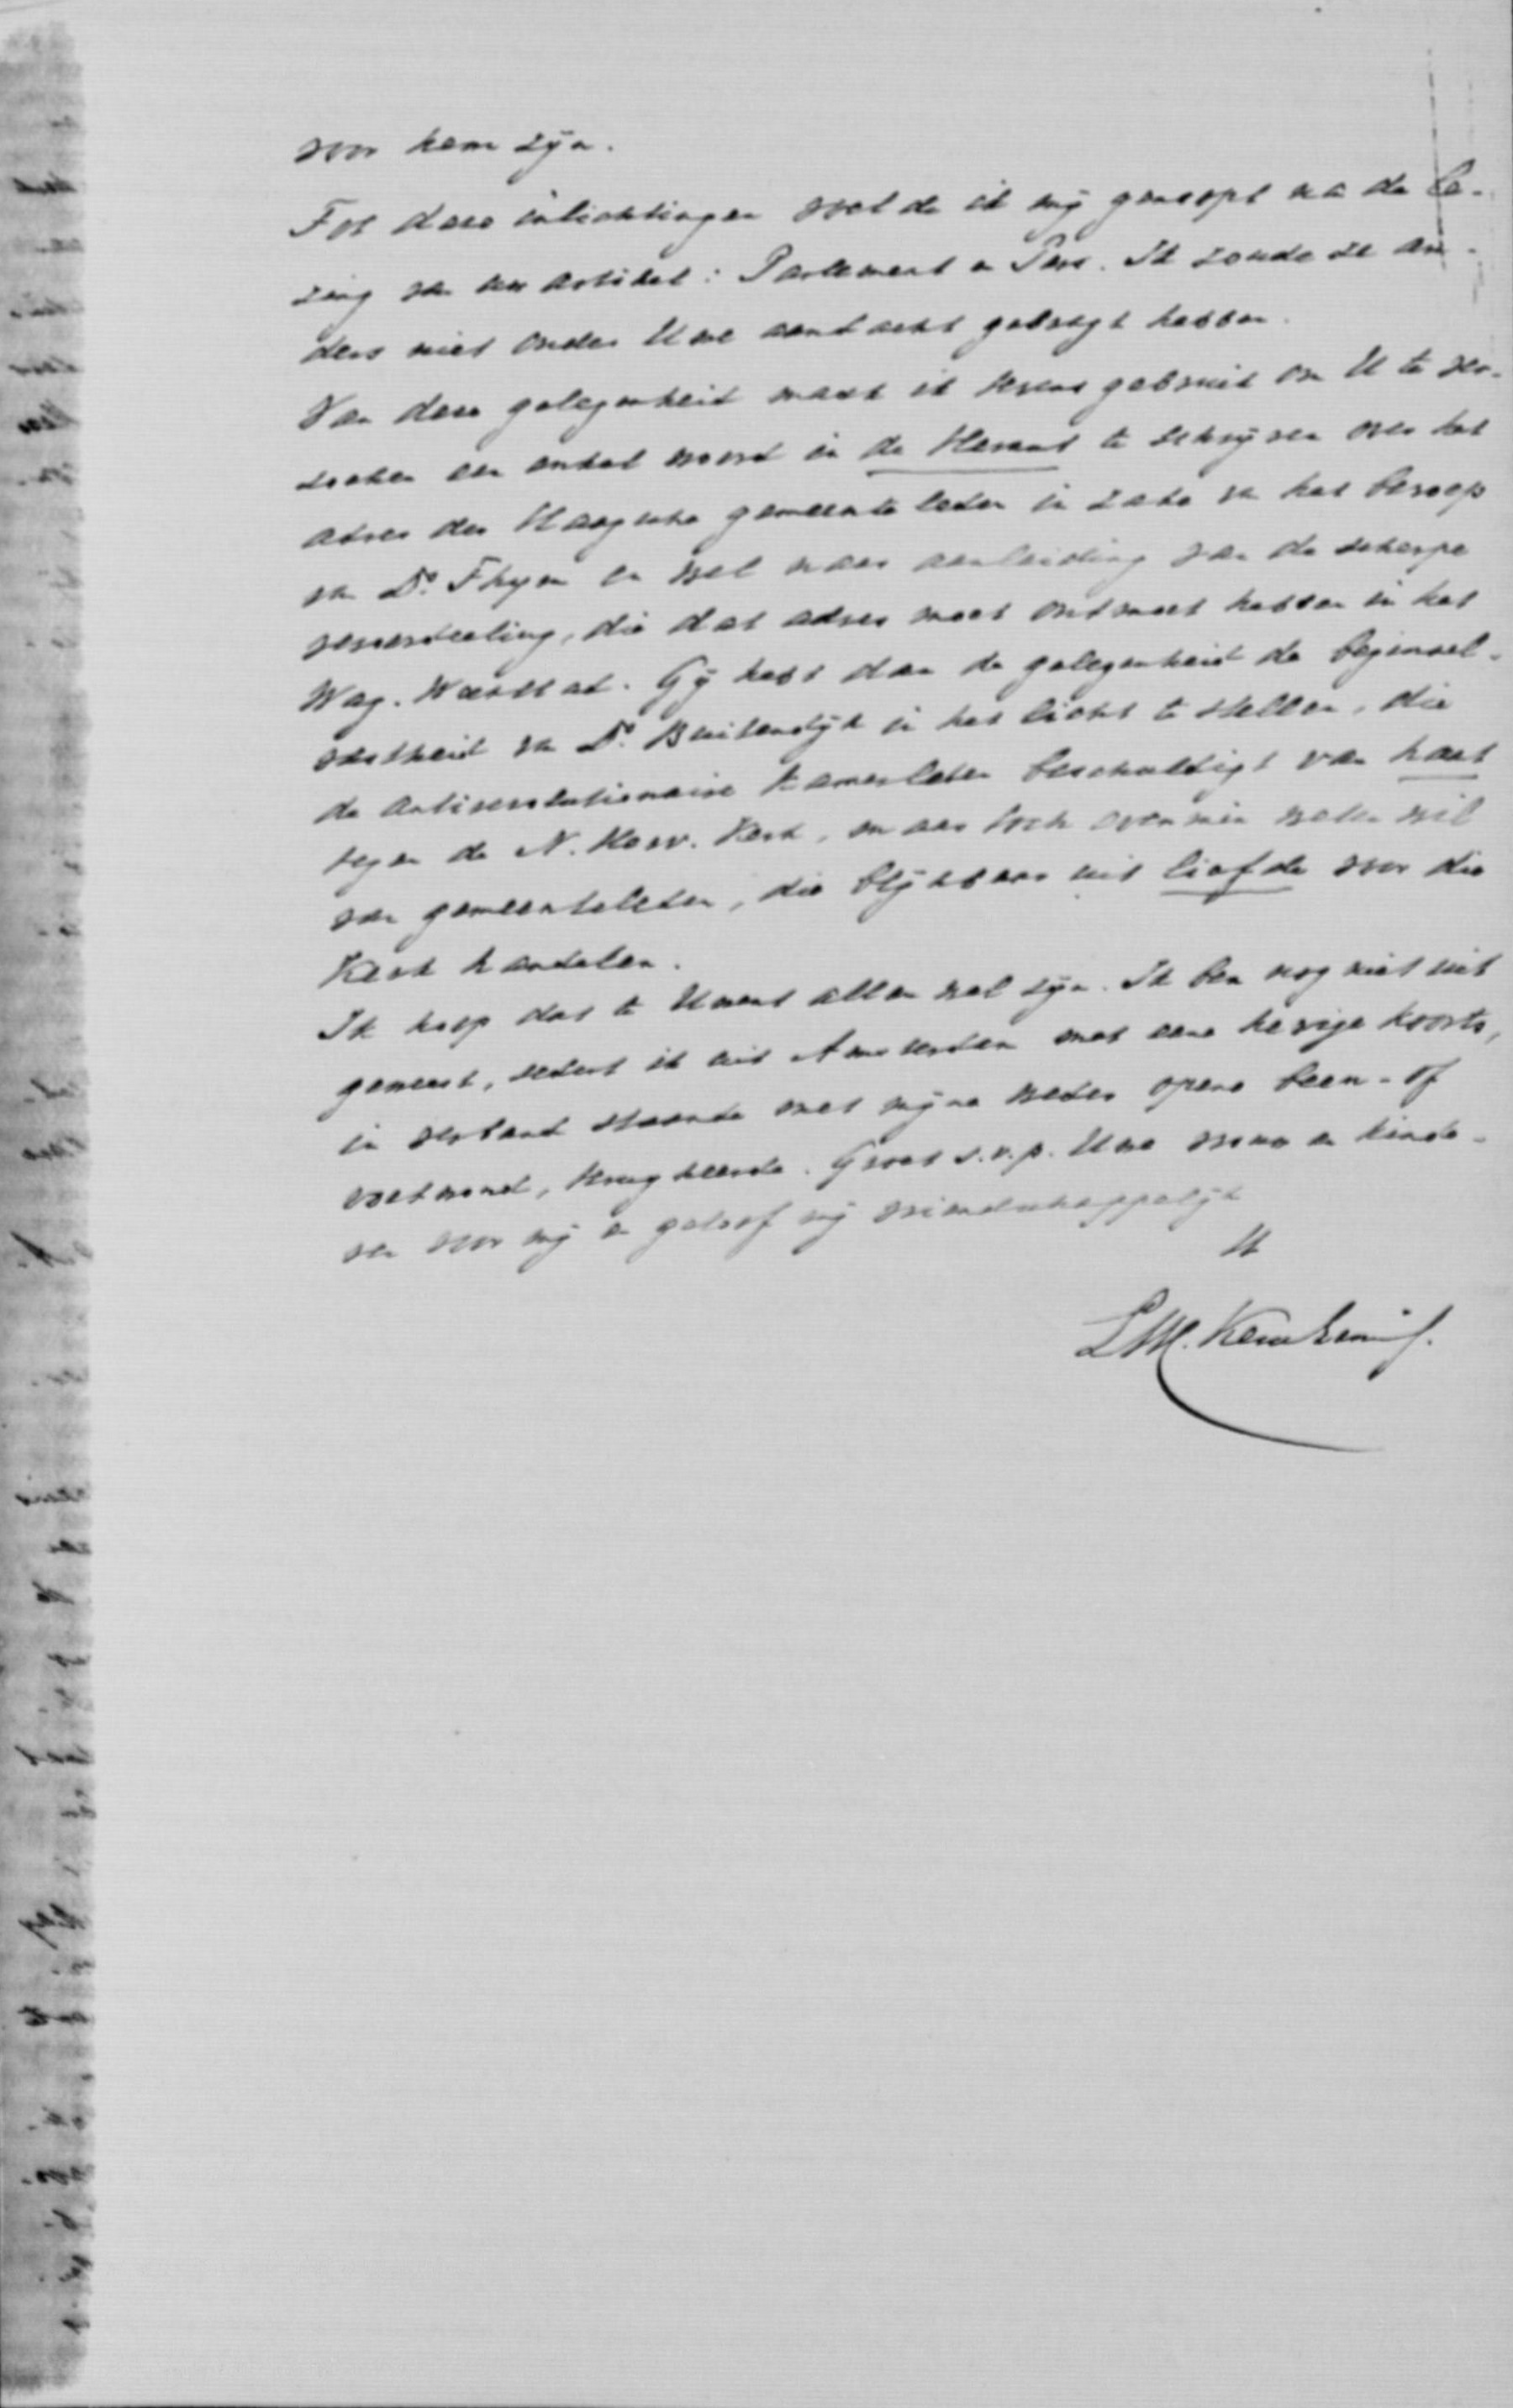 voor hem zijn.
Tot deze inlichtingen voelde ik mij genoopt na de le-
zing van uw artikel: Parlement en Pers. Ik zoude ze an-
ders niet onder Uwe aandacht gebragt hebben.
Van deze gelegenheid maak ik tevens gebruik om U te ver-
zoeken een enkel woord in de Heraut te schrijven over het
adres der Haagsche gemeenteleden in zake van het beroep
van Ds. Thym en wel naar aanleiding van de scherpe
veroordeeling, die dat adres moet ontmoet hebben in het
Wag. Weekblad. Gij hebt dan de gelegenheid de beginsel-
vastheid van Ds. Buitendijk in het licht te stellen, die
de antirevolutionaire Kamerleden beschuldigt van haat
tegen de N. Herv. Kerk, maar toch evenmin weten wil
van gemeenteleden, die blijkbaar uit liefde voor die
Kerk handelen.
Ik hoop dat te Uwent allen wel zijn. Ik ben nog niet uit
geweest, sedert ik uit Amsterdam met eene hevige koorts,
in verband staande met mijne weder opene been- of
voetwond, terugkeerde. Groet s.v.p. Uwe vrouw en kinde-
ren voor mij en geloof mij vriendschappelijk
U
L.W.C. Keuchenius.